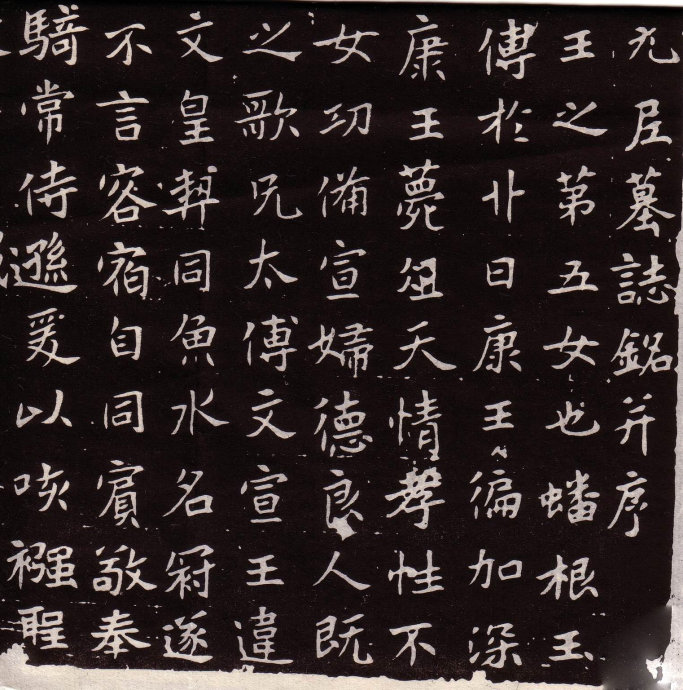 元尼墓誌銘并序
王之第五女也蟠根玉
傅於丱日康王偏加深
康王薨俎天情孝性不
女功備宣婦德良人既
之歌兄太傅文宣王違
文皇契同魚水名冠遂
不言容宿自同賓敬奉
騎常侍遜爰以咳襁聖